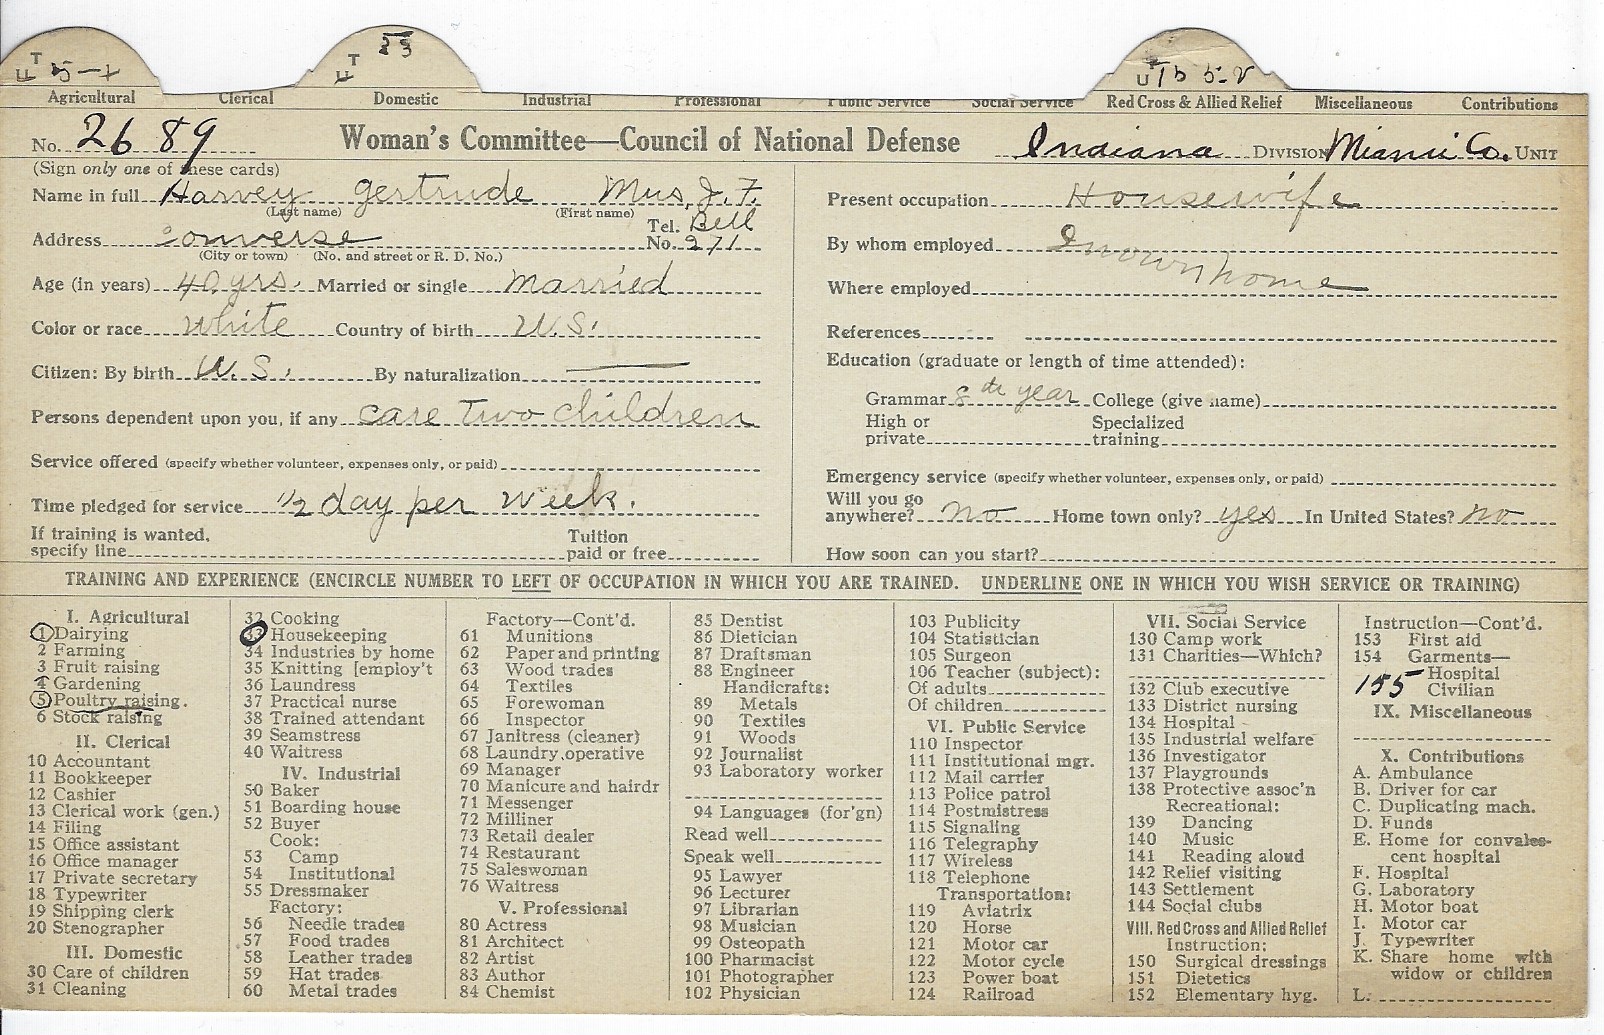 T 23
F T 5-1
F
T
U 1b 5-2
Agricultural Clerical Domestic Industrial Professional Public Service Social Service Red Cross & Allied Relief Miscellaneous Contributions
No. 2689 Woman's Committee—Council of National Defense Indiana DIVISION Miami Co. UNIT
(Sign only one of these cards)
Name in full Harvey Gertrude Mrs. J. F.
(Last name) (First name)
Address Converse Tel. No. Bell 271
(City or town) (No. and street or R. D. No.)
Age (in years) 40 yrs. Married or single Married
Color or race White Country of birth U.S.
Citizen: By birth U.S. By naturalization —
Persons dependent upon you, if any care two children
Service offered (specify whether volunteer, expenses only, or paid)
Time pledged for service 1/2 day per week.
If training is wanted, specify line Tuition paid or free
Present occupation Housewife
By whom employed In own home
Where employed
References
Education (graduate or length of time attended):
Grammar 8th year College (give name)
High or private Specialized training
Emergency service (specify whether volunteer, expenses only, or paid)
Will you go anywhere? no Home town only? yes In United States? no
How soon can you start?
TRAINING AND EXPERIENCE (ENCIRCLE NUMBER TO LEFT OF OCCUPATION IN WHICH YOU ARE TRAINED. UNDERLINE ONE IN WHICH YOU WISH SERVICE OR TRAINING)
I. Agricultural
1 Dairying
2 Farming
3 Fruit raising
4 Gardening
5 Poultry raising.
6 Stock raising
II. Clerical
10 Accountant
11 Bookkeeper
12 Cashier
13 Clerical work (gen.)
14 Filing
15 Office assistant
16 Office manager
17 Private secretary
18 Typewriter
19 Shipping clerk
20 Stenographer
III. Domestic
30 Care of children
31 Cleaning
32 Cooking
33 Housekeeping
34 Industries by home
35 Knitting [employ't
36 Laundress
37 Practical nurse
38 Trained attendant
39 Seamstress
40 Waitress
IV. Industrial
50 Baker
51 Boarding house
52 Buyer
Cook:
53 Camp
54 Institutional
55 Dressmaker
Factory:
56 Needle trades
57 Food trades
58 Leather trades
59 Hat trades
60 Metal trades
Factory—Cont'd.
61 Munitions
62 Paper and printing
63 Wood trades
64 Textiles
65 Forewoman
66 Inspector
67 Janitress (cleaner)
68 Laundry, operative
69 Manager
70 Manicure and hairdr
71 Messenger
72 Milliner
73 Retail dealer
74 Restaurant
75 Saleswoman
76 Waitress
V. Professional
80 Actress
81 Architect
82 Artist
83 Author
84 Chemist
85 Dentist
86 Dietician
87 Draftsman
88 Engineer
Handicrafts:
89 Metals
90 Textiles
91 Woods
92 Journalist
93 Laboratory worker
94 Languages (for'gn)
Read well
Speak well
95 Lawyer
96 Lecturer
97 Librarian
98 Musician
99 Osteopath
100 Pharmacist
101 Photographer
102 Physician
103 Publicity
104 Statistician
105 Surgeon
106 Teacher (subject):
Of adults
Of children
VI. Public Service
110 Inspector
111 Institutional mgr.
112 Mail carrier
113 Police patrol
114 Postmistress
115 Signaling
116 Telegraphy
117 Wireless
118 Telephone
Transportation:
119 Aviatrix
120 Horse
121 Motor car
122 Motor cycle
123 Power boat
124 Railroad
VII. Social Service
130 Camp work
131 Charities—Which?
132 Club executive
133 District nursing
134 Hospital
135 Industrial welfare
136 Investigator
137 Playgrounds
138 Protective assoc'n
Recreational:
139 Dancing
140 Music
141 Reading aloud
142 Relief visiting
143 Settlement
144 Social clubs
VIII. Red Cross and Allied Relief
Instruction:
150 Surgical dressings
151 Dietetics
152 Elementary hyg.
Instruction—Cont'd.
153 First aid
154 Garments—
Hospital
155 Civilian
IX. Miscellaneous
X. Contributions
A. Ambulance
B. Driver for car
C. Duplicating mach.
D. Funds
E. Home for convales-
cent hospital
F. Hospital
G. Laboratory
H. Motor boat
I. Motor car
J. Typewriter
K. Share home with
widow or children
L.